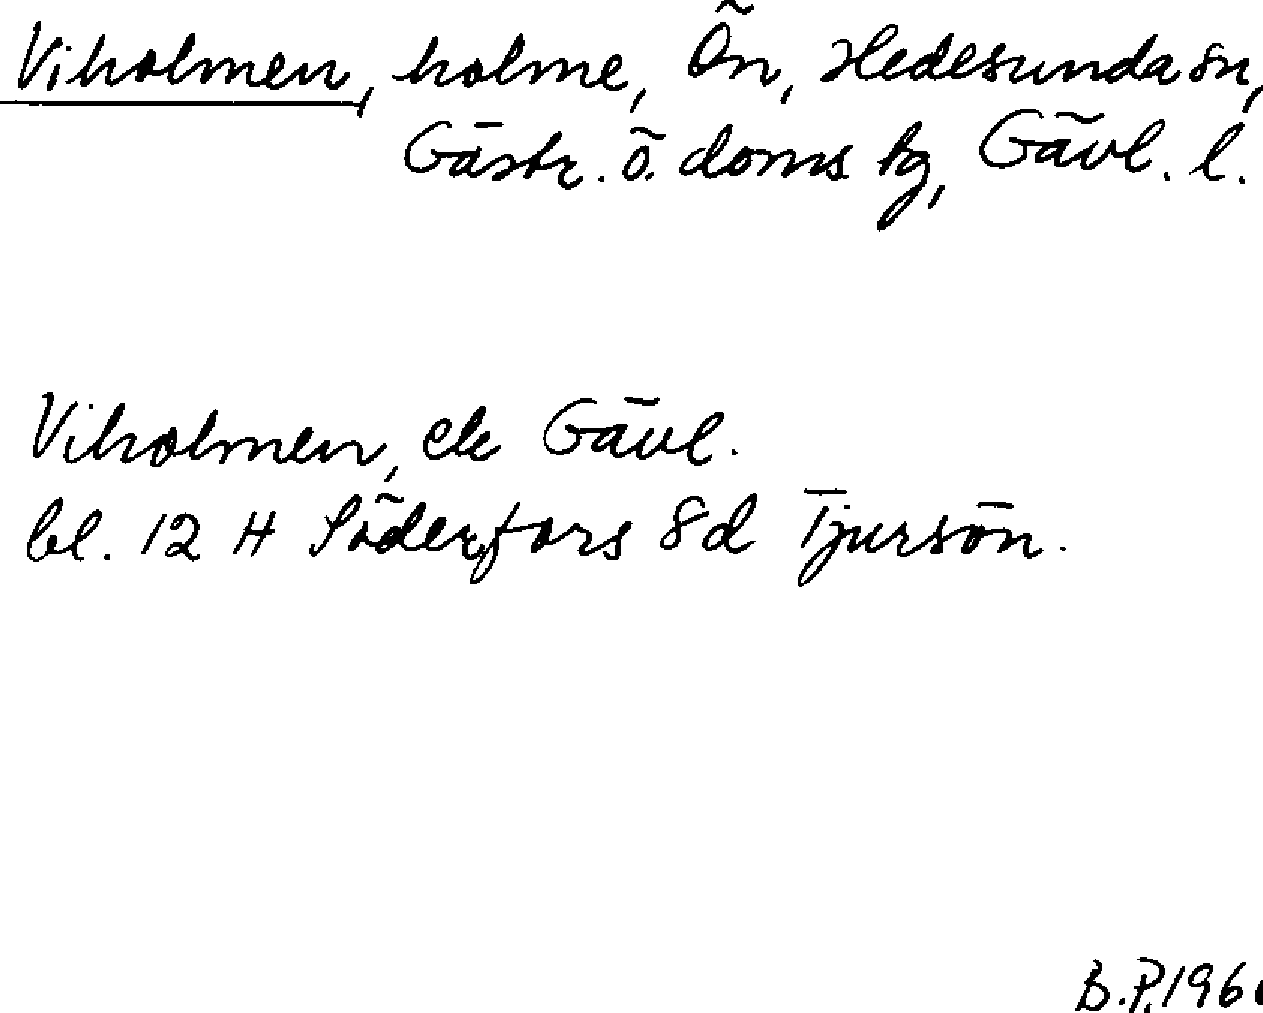 Viholmen, holme, Ön, Hedesunda sn,
Gästr. ö. doms tg, Gävl. l.
Viholmen, ek Gävl.
bl. 12 H Söderfors 8d Tjursön.
B.P. 196